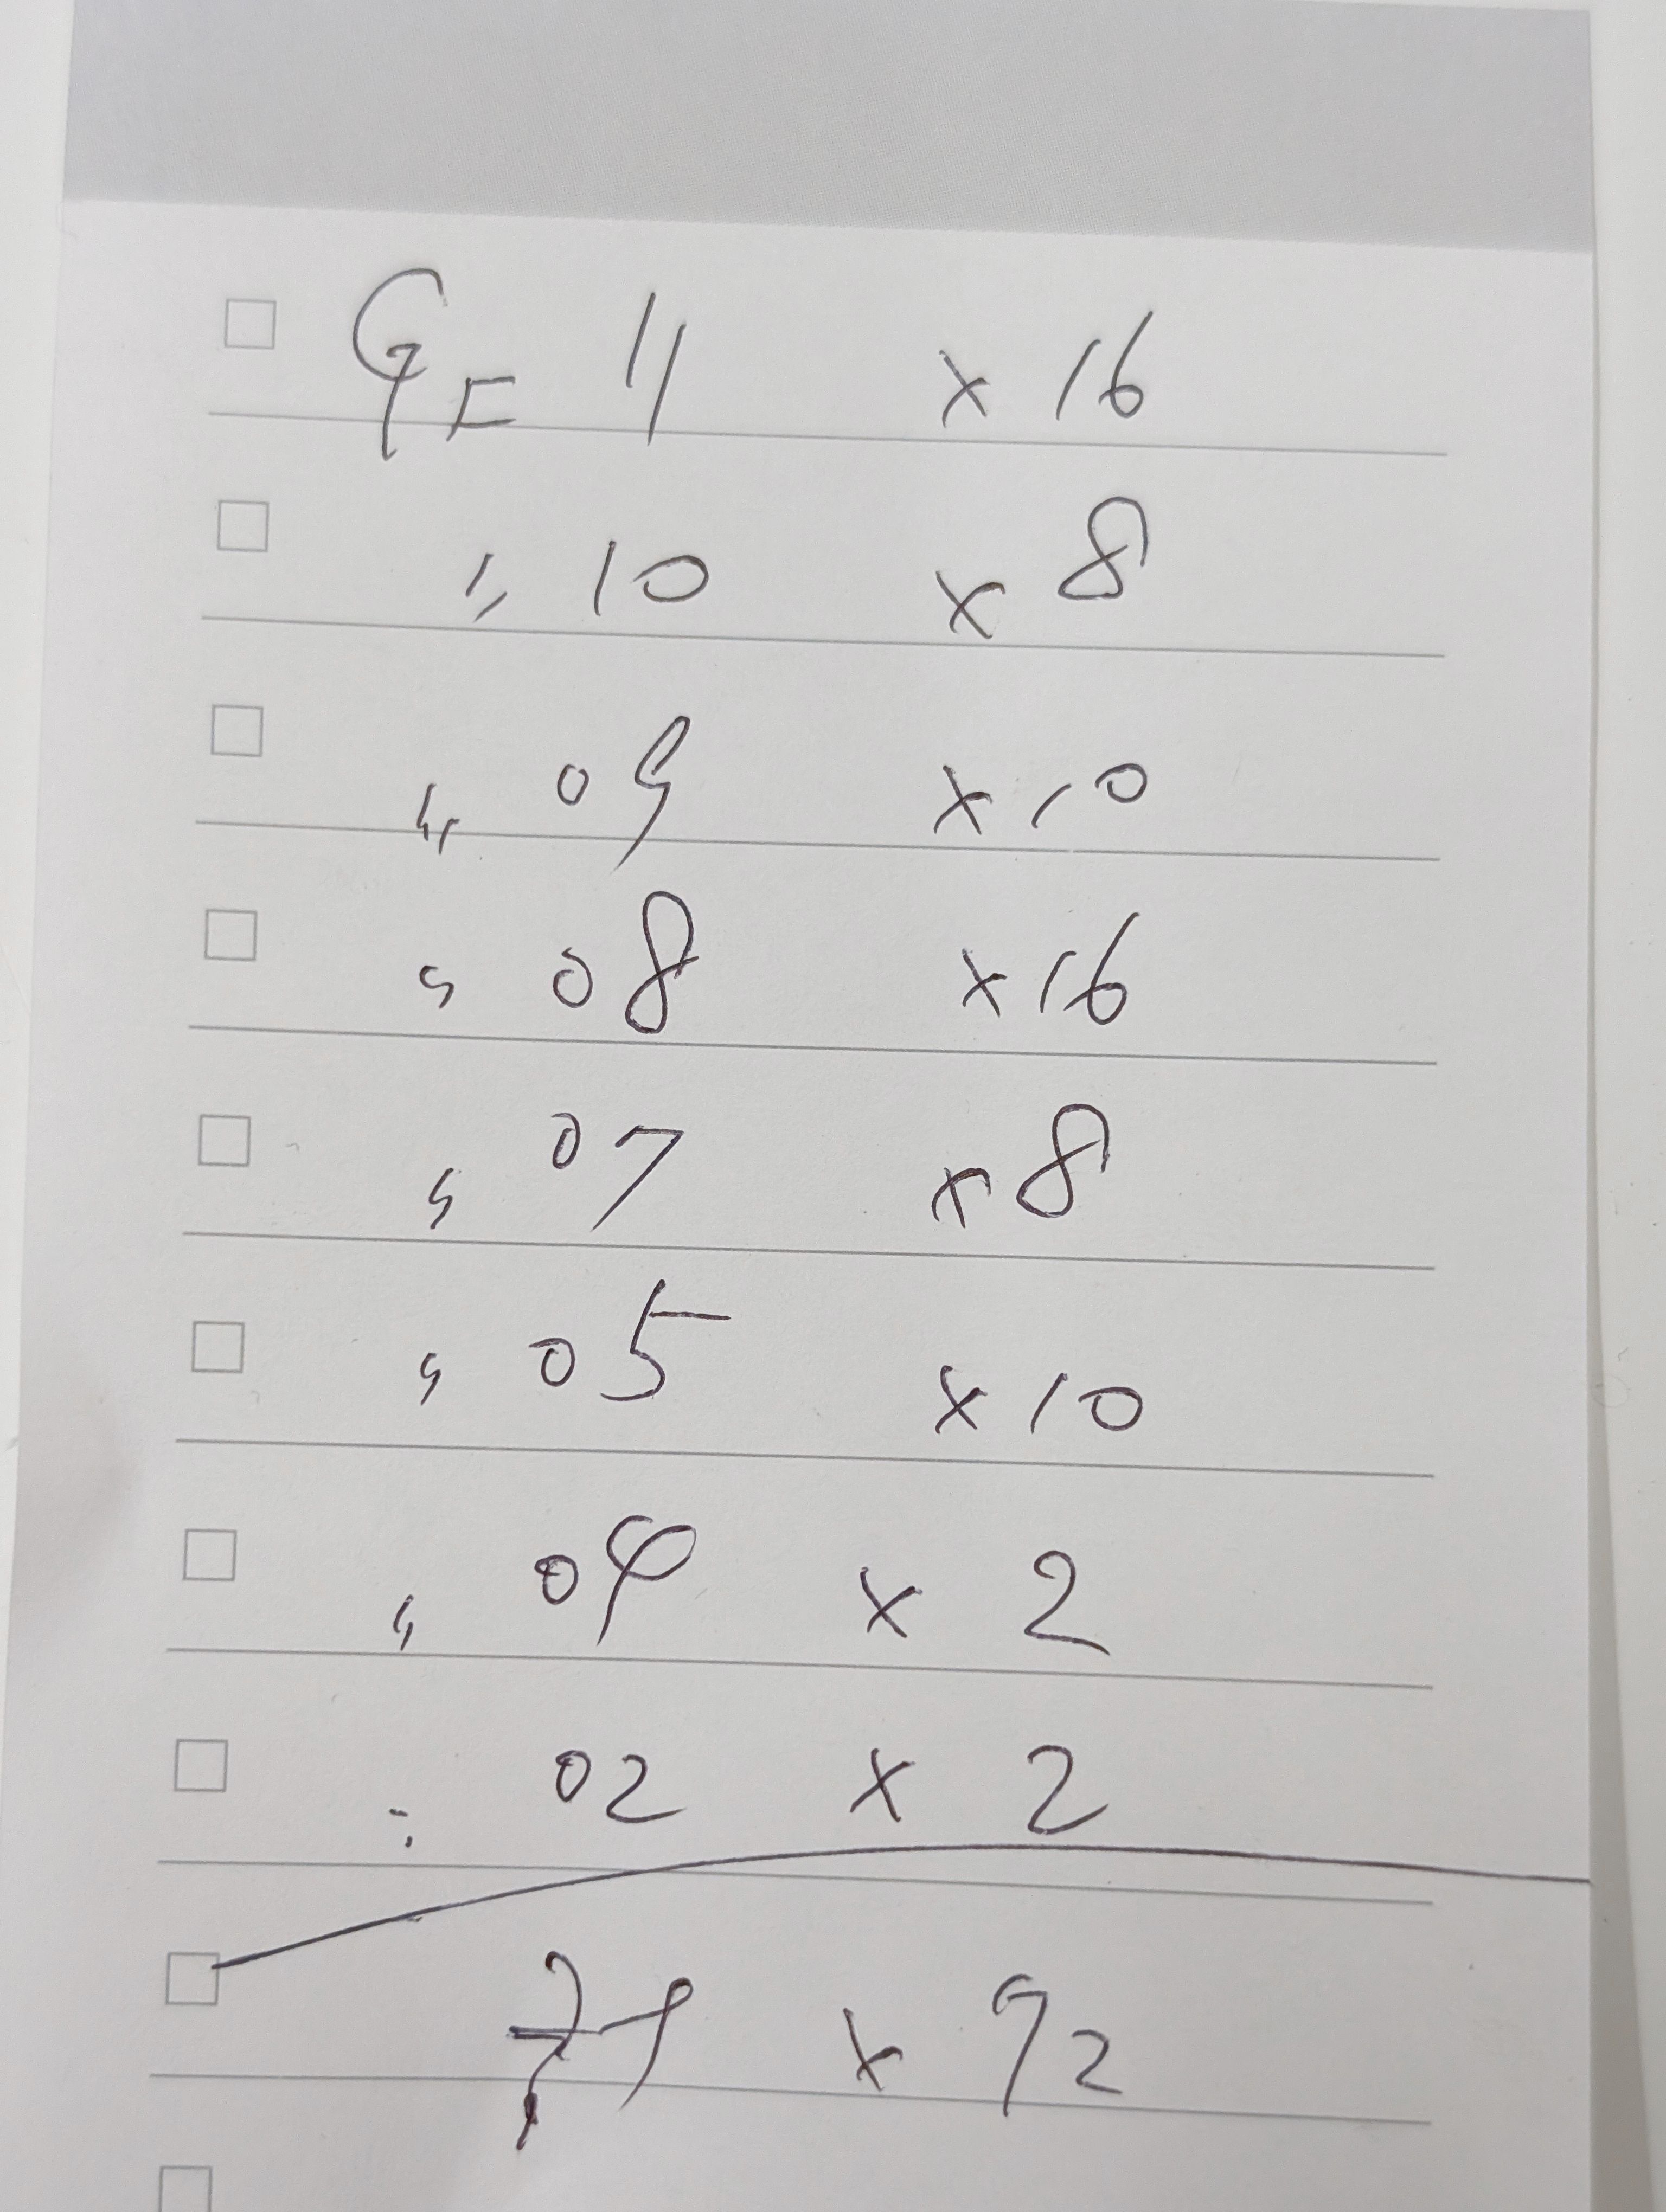 GF 11 × 16
〃 10 × 8
〃 09 × 10
〃 08 × 16
〃 07 × 8
〃 05 × 10
〃 04 × 2
〃 02 × 2
× 72